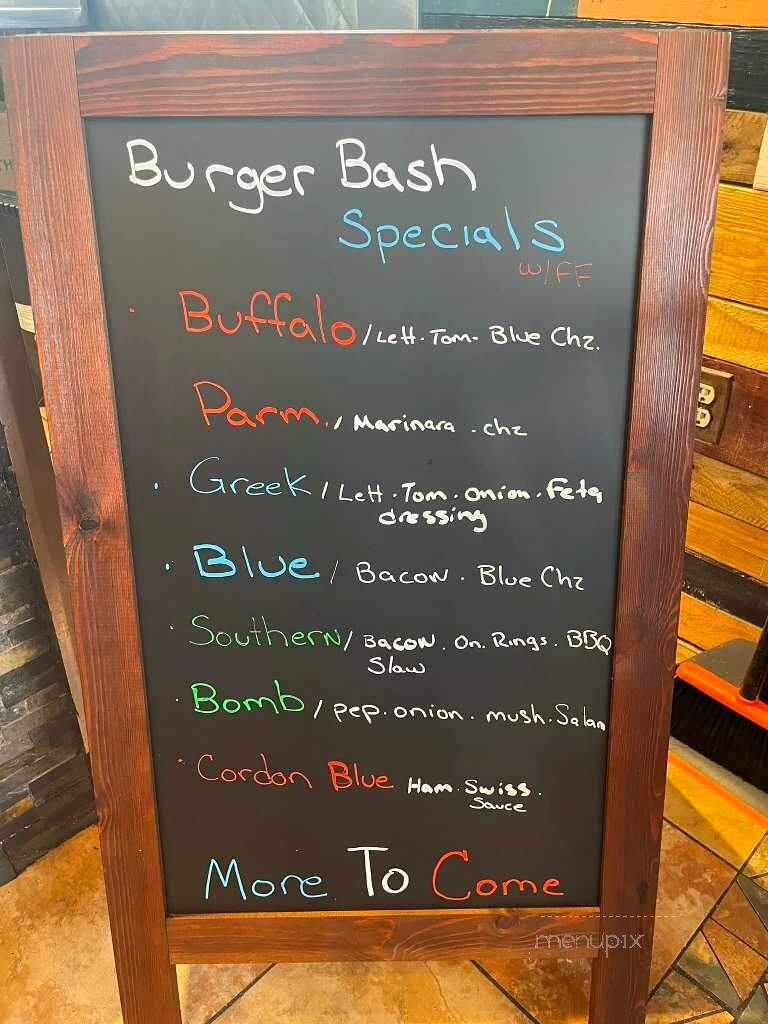 Burger Bash
Specials
w/FF
· Buffalo / Lett. Tom- Blue Chz.
Parm. / Marinara . chz
· Greek / Lett. Tom. onion. Feta
dressing
· Blue / Bacon . Blue Chz
· Southern / Bacon . On. Rings . BBQ
Slaw
· Bomb / pep. onion. mush. Salam
· Cordon Blue Ham. Swiss.
Sauce
More To Come
menupix